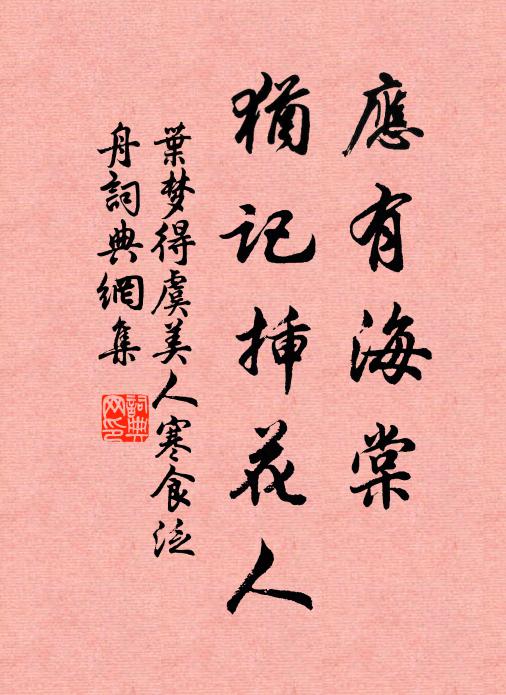 應有海棠
猶記插花人
葉梦得虞美人寒食泛
舟詞典網集
詞典网印